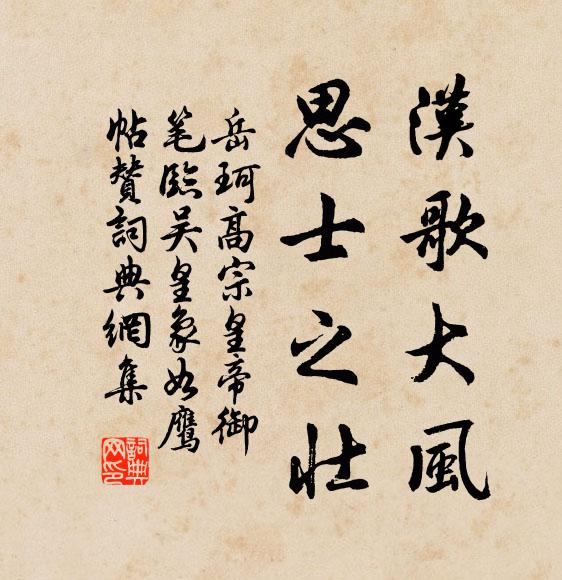 漢歌大風
思士之壯
岳珂高宗皇帝御
笔臨吴皇象如鷹
帖贊詞典網集
詞典
网印